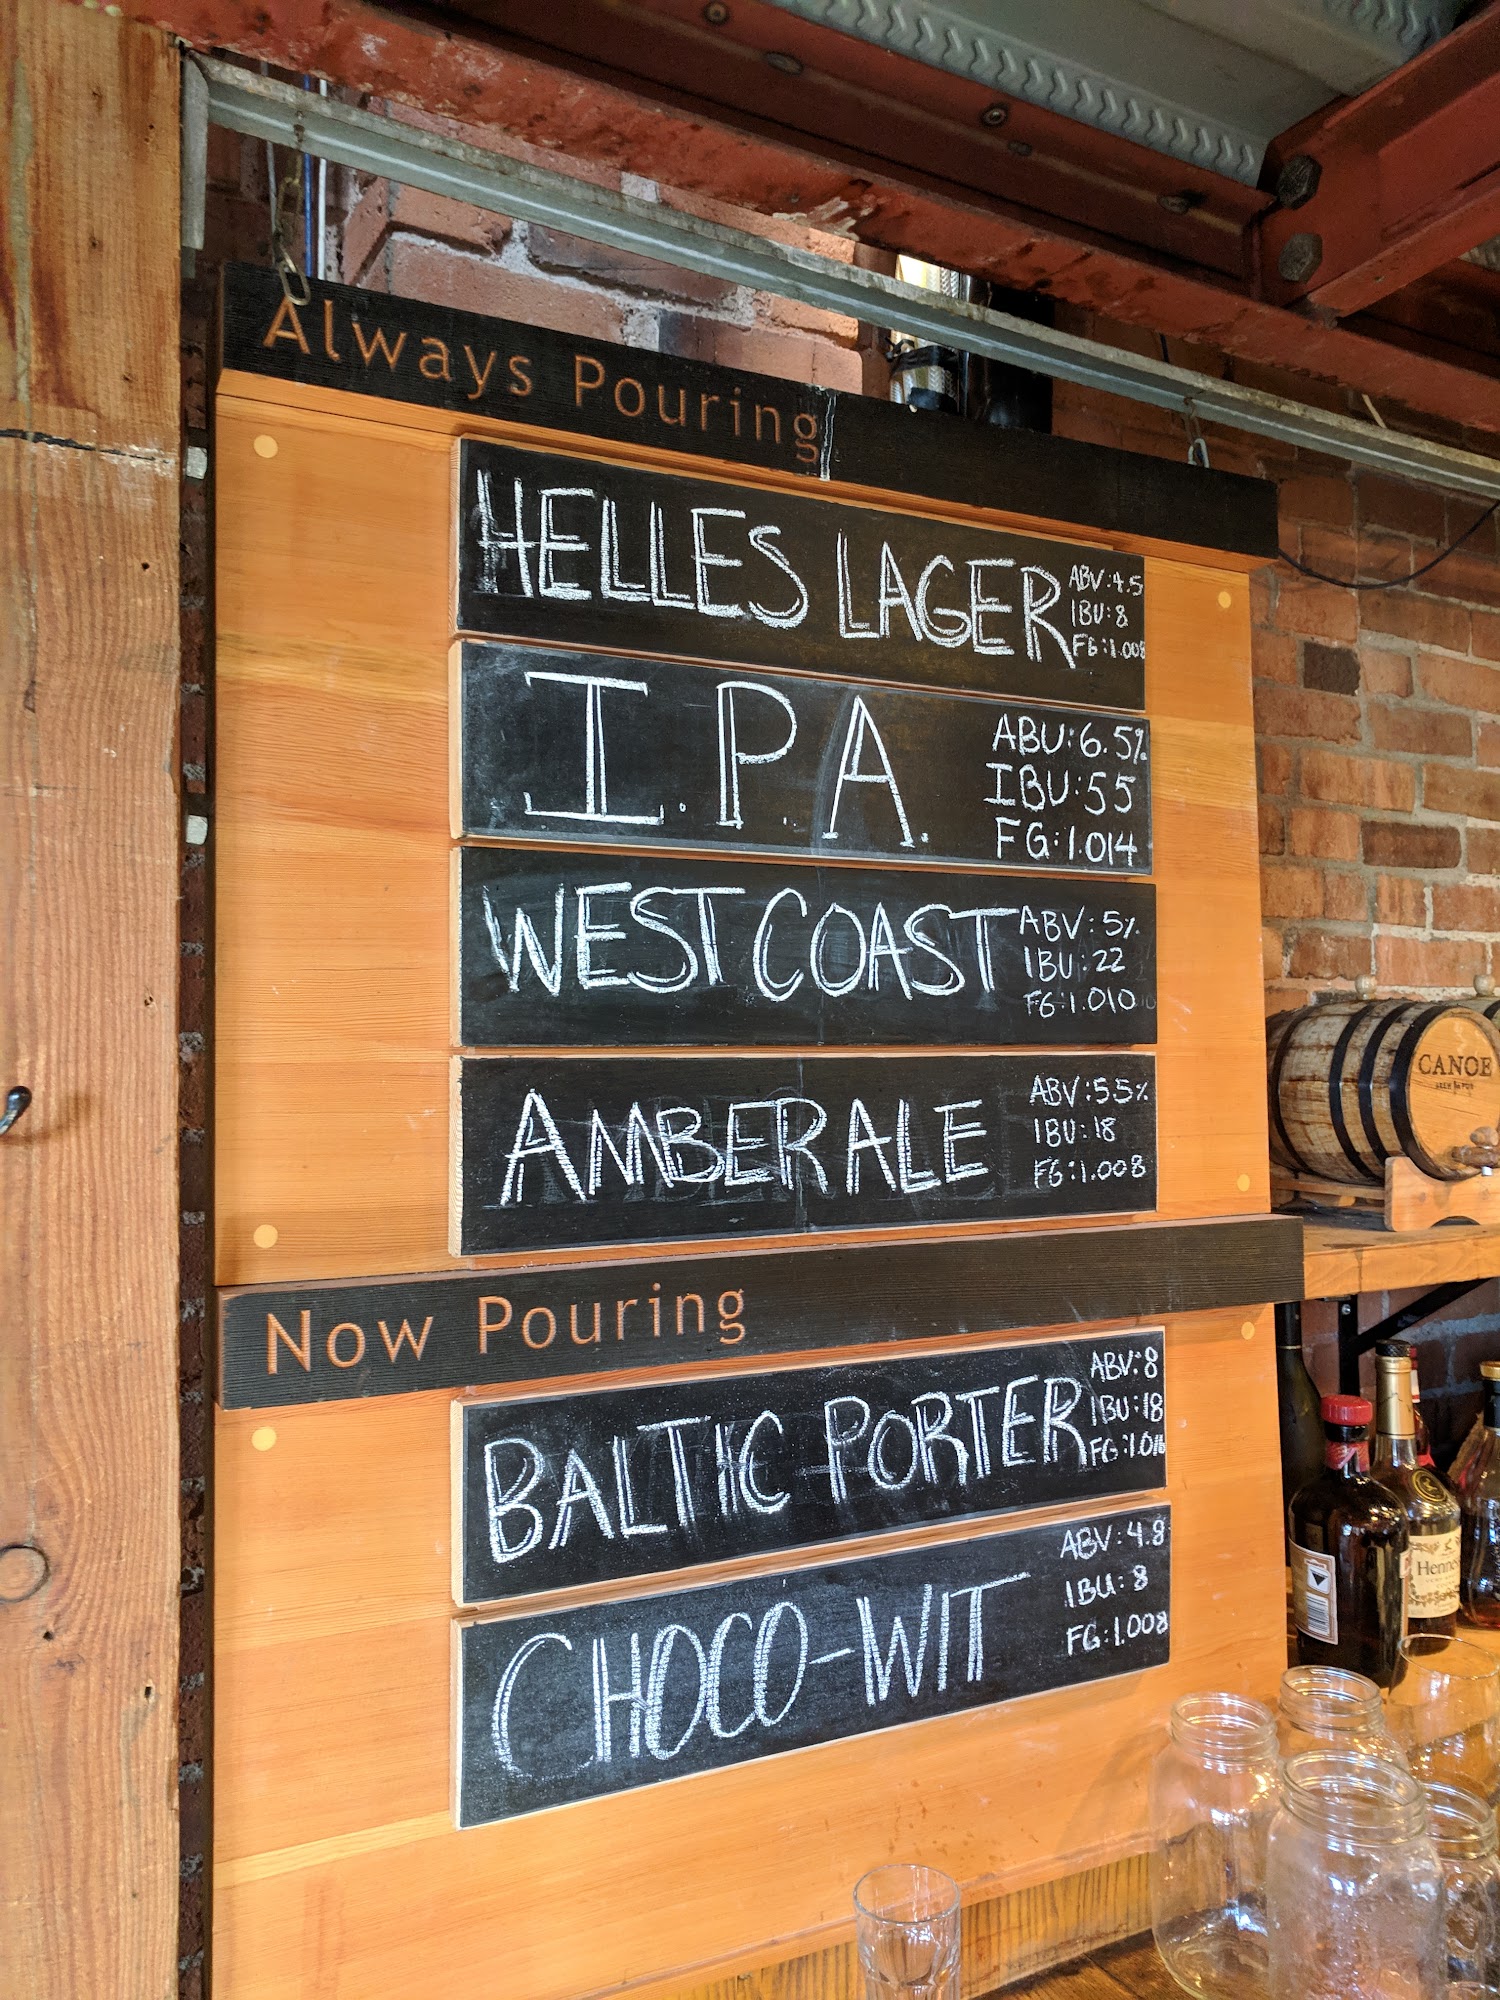 Always Pouring
HELLES LAGER
ABV:4.5
IBU:8
FG:1.008
I.P.A.
ABU:6.5%
IBU:55
FG:1.014
WEST COAST
ABV:5%
IBU:22
FG:1.010
AMBER ALE
ABV:5.5%
IBU:18
FG:1.008
Now Pouring
BALTIC PORTER
ABV:8
IBU:18
FG:1.016
CHOCO-WIT
ABV:4.8
IBU:8
FG:1.008
CANOE